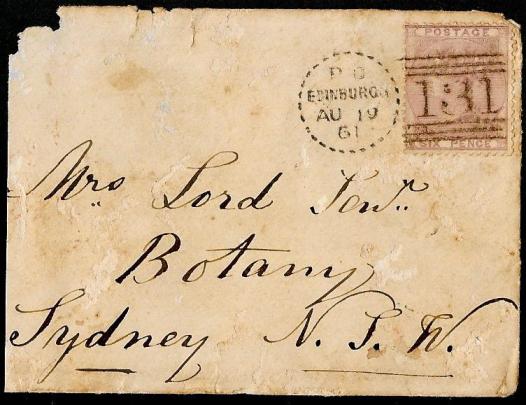 POSTAGE
131
SIX PENCE
P O
EDINBURGH
AU 19
61
Mrs Lord Senr
Botany
Sydney N. S. W.